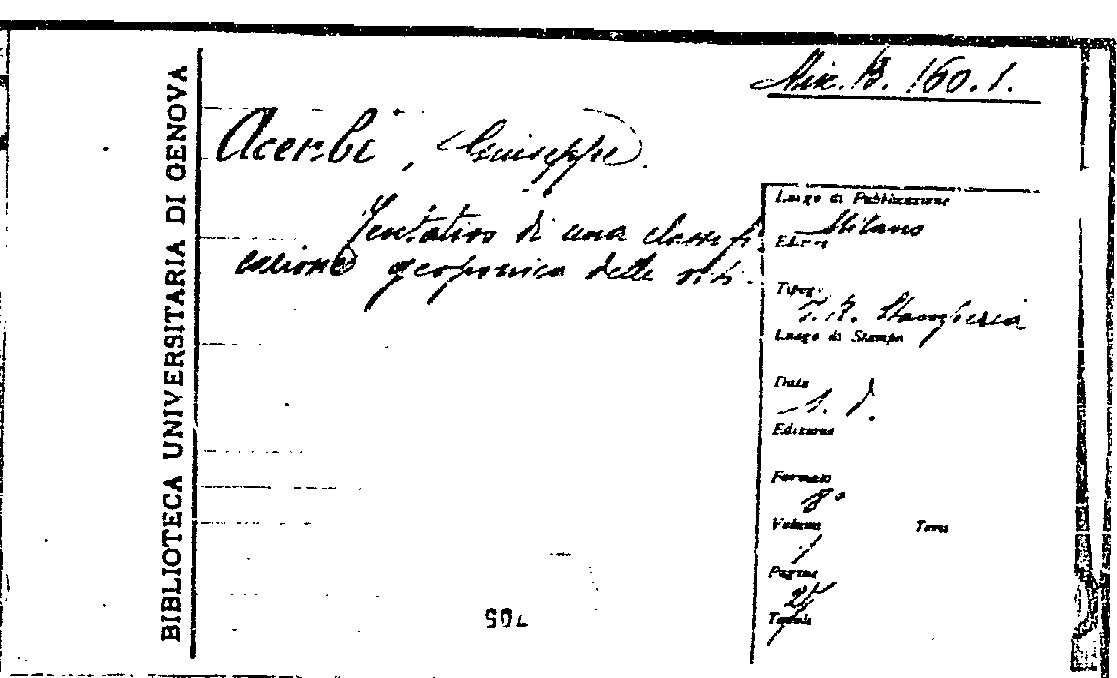 BIBLIOTECA UNIVERSITARIA DI GENOVA
Mix. B. 160.1.
Acerbi, Giuseppe.
Tentativo di una classifi
cazione geoponica delle viti.
Luogo di Pubblicazione
Milano
Editore
Tipogr.
I. R. Stamperia
Luogo di Stampa
Data
s. d.
Edizione
Formato
8°
Volume Tomo
1
Pagine
Tavole
705